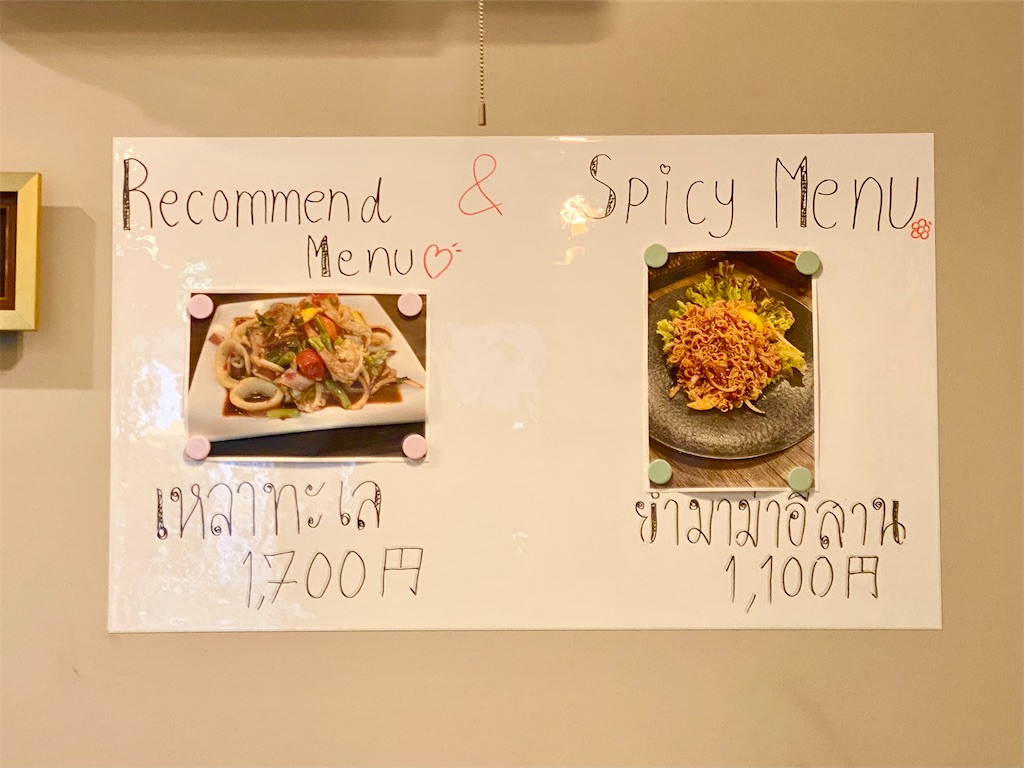 Recommend & Spicy Menu
Menu
เหลาทะเล
1,700円
ยำมาม่าอีลาน
1,100円